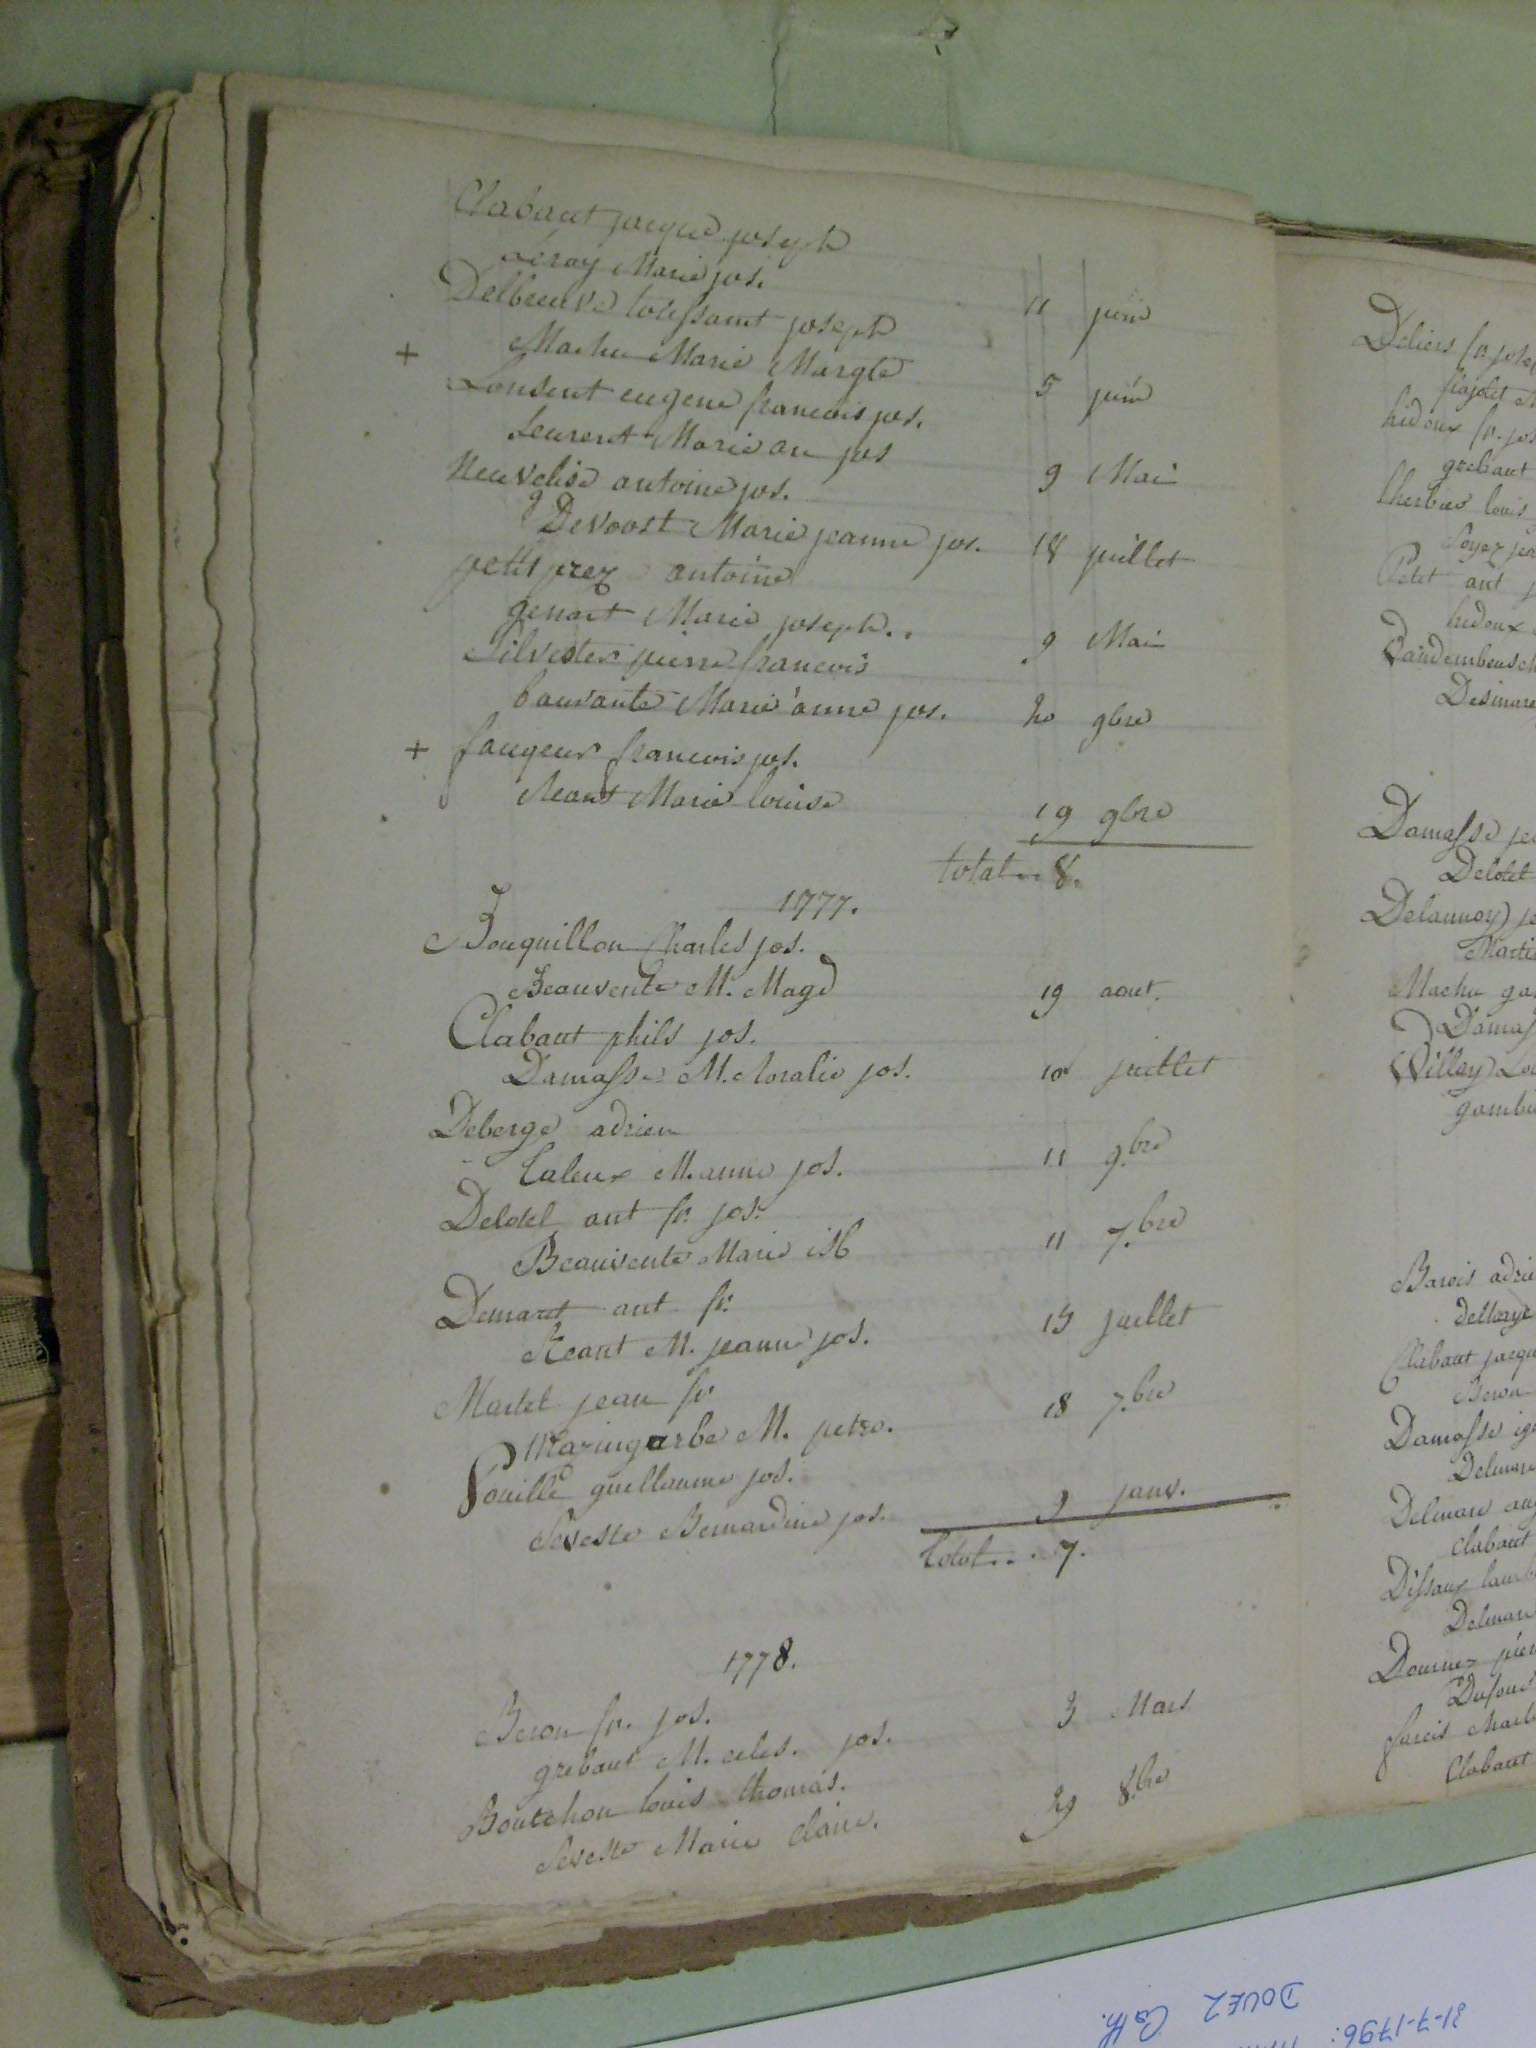 Clabaut jacque joseph
Leroy Marie jos. 11 juin
Delbreuve toussaint joseph
Machu Marie Margte 5 juin
+ Lonsent eugene francois jos.
Leurent Marie an jos 9 Mai
Neuvelise antoine jos.
Devoost Marie jeanne jos. 18 juillet
petit prez antoine
genart Marie joseph.. 9 Mai
Silvester pierre francois
bauvante Marie anne jos. 20 9bre
+ faugeur francois jos.
Reant Marie louise 19 9bre
total... 8.
1777.
Bouquillon Charles jos.
Beauvente M. Magd 19 aout.
Clabaut phils jos.
Damasse M. Roralie jos. 10 juillet
Deberge adrien
Caleux M. anne jos. 11 9.bre
Delotel ant fr. jos.
Beauvente Marie isb 11 7.bre
Demaret ant fr.
Reant M. jeanne jos. 15 juillet
Martel jean fr.
Mazingarbe M. petro. 18 7.bre
Souille guellaume jos.
Seveste Bernardine jos. 9 janv.
total... 7.
1778.
Beron fr. jos.
grebaut M. celes. jos. 3 Mars
Boutchon louis thomas.
Seveste Marie claire. 29 8.bre
Deliers fr. jose
flajolet M
hidoux fr. jos
grebaut
lherbier louis
Soyez
Petet ant j
hidoux
Vandenbousch
Desmare
Damasse je
Delotel
Delannoy je
Marte
Machu ga
Damas
Willay Lou
gambi
Barois adrie
delhaye
Clabaut jacqu
Beron
Damasse ig
Delmare
Delmare au
Clabaut
Dissaux lamb
Delmare
Dournez pier
Dufour
farcis Charl
Clabaut
31-7-1796:
DOUEZ Cath.